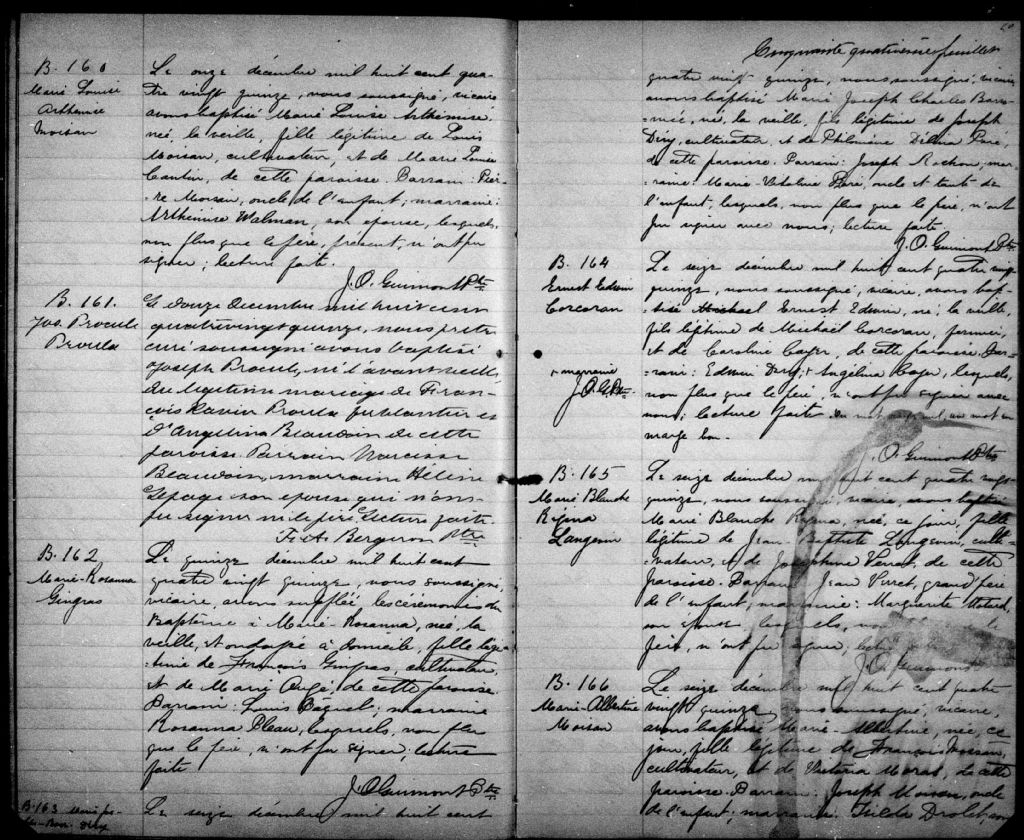 B. 160
Marie Louise
Arthémise
Moisan
Le onze décembre mil huit cent qua-
tre vingt quinze, nous soussigné, vicaire
avons baptisé Marie Louise Arthémise,
née, la veille, fille légitime de Louis
Moisan, cultivateur, et de Marie Louise
Cantin, de cette paroisse. Parrain: Pier-
re Moisan, oncle de l'enfant; marraine:
Arthémise Walman, son épouse, lesquels,
non plus que le père, présent, n'ont pu
signer; lecture faite.
J. O. Guimont Ptre
B. 161.
Jos. Procule
Proulx
Le douze decembre mil huit cent
quatrevingt quinze, nous pretre
curé soussigné avons baptisé
Joseph Procul, né l'avant veille,
du legitime mariage de Fran-
çois Xavier Proulx et
d'Angelina Beaudoin de cette
paroisse. Parrain Narcisse
Beaudoin, marraine Hélène
Lepage son epouse qui n'ont
pu signer ni le père Lecture faite.
F. A. Bergeron Ptre
B. 162
Marie-Rosanna
Gingras
Le quinze décembre mil huit cent
quatre vingt quinze, nous soussigné,
vicaire, avons suppléé les cérémonies du
Baptême à Marie-Rosanna, née, la
veille, et ondoyée à domicile, fille légi-
time de François Gingras, cultivateur,
et de Marie Augé, de cette paroisse.
Parrain: Louis Paquet; marraine
Rosanna Pleau, lesquels, non plus
que le père, n'ont pu signer, lecture
faite
J. O. Guimont Ptre
B. 163 Marie Jos-
Le seize décembre mil huit cent
Cinquante quatrième feuillet
quatre vingt quinze, nous soussigné, vicaire
avons baptisé Marie Joseph Charles Bar-
née, né, la veille, fils légitime de Joseph
Dery, cultivateur, et de Philomène Délima Paré,
de cette paroisse. Parrain: Joseph Rochon, mar-
raine: Marie-Vitaline Paré, oncle et tante de
l'enfant, lesquels, non plus que le père, n'ont
pu signer avec nous; lecture faite
J. O. Guimont Ptre
B. 164
Ernest Edwin
Corcoran
+ marraine
J. O. G. Ptre
Le seize décembre mil huit cent quatre vingt
quinze, nous soussigné, vicaire, avons bap-
tisé Michael Ernest Edwin, né, la veille,
fils légitime de Michaël Corcoran, fermier,
et de Caroline Cayer, de cette paroisse. Par-
rain: Edwin Dery; + Angélina Cayer, lesquels,
non plus que le père, n'ont pu signer avec
nous; lecture faite. Un mot nul, un mot en
marge bon.
J. O. Guimont Ptre
B. 165
Marie Blanche
Régina
Langevin
Le seize décembre mil huit cent quatre vingt
quinze, nous soussigné, vicaire, avons baptisé
Marie Blanche Régina, née, ce jour, fille
légitime de Jean-Baptiste Langevin, culti-
vateur, et de Joséphine Verret, de cette
paroisse. Parrain: Jean Verret, grand'père
de l'enfant; marraine: Marguerite
son épouse, lesquels, non
père, n'ont pu signer; lecture
J. O. Guimont
B. 166
Marie-Albertine
Moisan
Le seize décembre mil huit cent quatre
vingt quinze, nous soussigné, vicaire,
avons baptisé Marie-Albertine, née, ce
jour, fille légitime de François Moisan,
cultivateur, et de Victoria Moras, de cette
paroisse. Parrain: Joseph Moisan, oncle
de l'enfant; marraine: Exilda Drolet, son